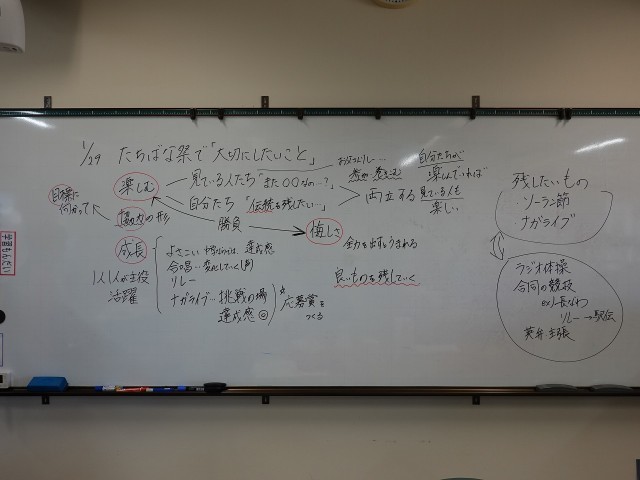 1/29 たちばな祭で「大切にしたいこと」
目標に
向かって
楽しむ
見ている人たち「また〇〇なの…?」
自分たち「伝統を残したい…」
両立する
自分たちが
楽しんでいれば
見ている人も
楽しい
協力の形
勝負
悔しさ
全力を出すとうまれる
成長
1人1人が主役
活躍
よさこい
達成感
合唱…変化していく(声)
リレー
ナガライブ…挑戦の場
達成感◎
応募賞を
つくる
良いものを残していく
残したいもの
ソーラン節
ナガライブ
ラジオ体操
合同の競技
ex)長なわ
リレー→駅伝
英弁・主張